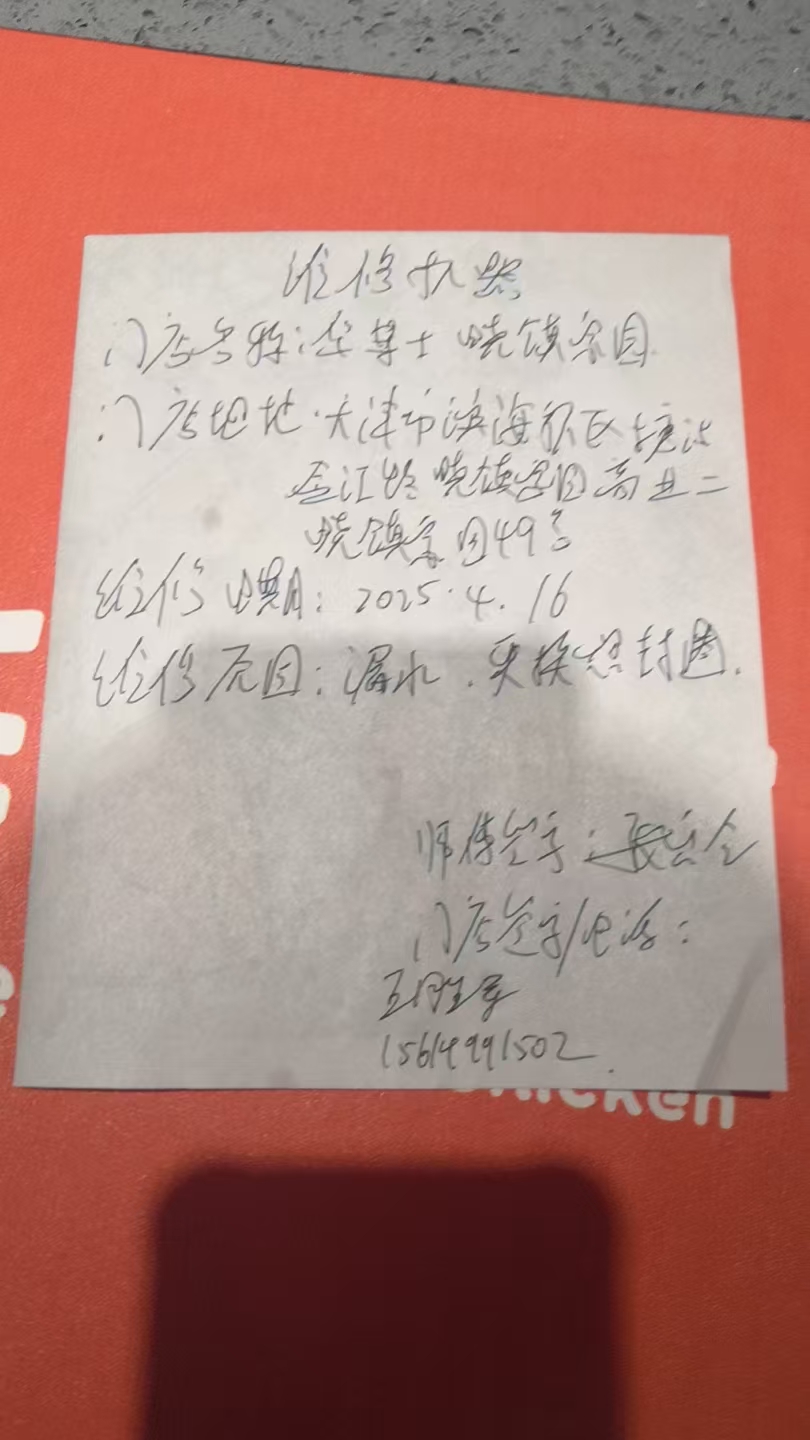 维修机器
门店名称:华莱士 晓镇家园.
门店地址:天津市滨海新区塘沽
晓镇家园商业二
晓镇家园49号
维修日期: 2025.4.16
维修原因:漏水.更换密封圈.
师傅签字:
门店签字/电话:
15614991502.
CHICKEN